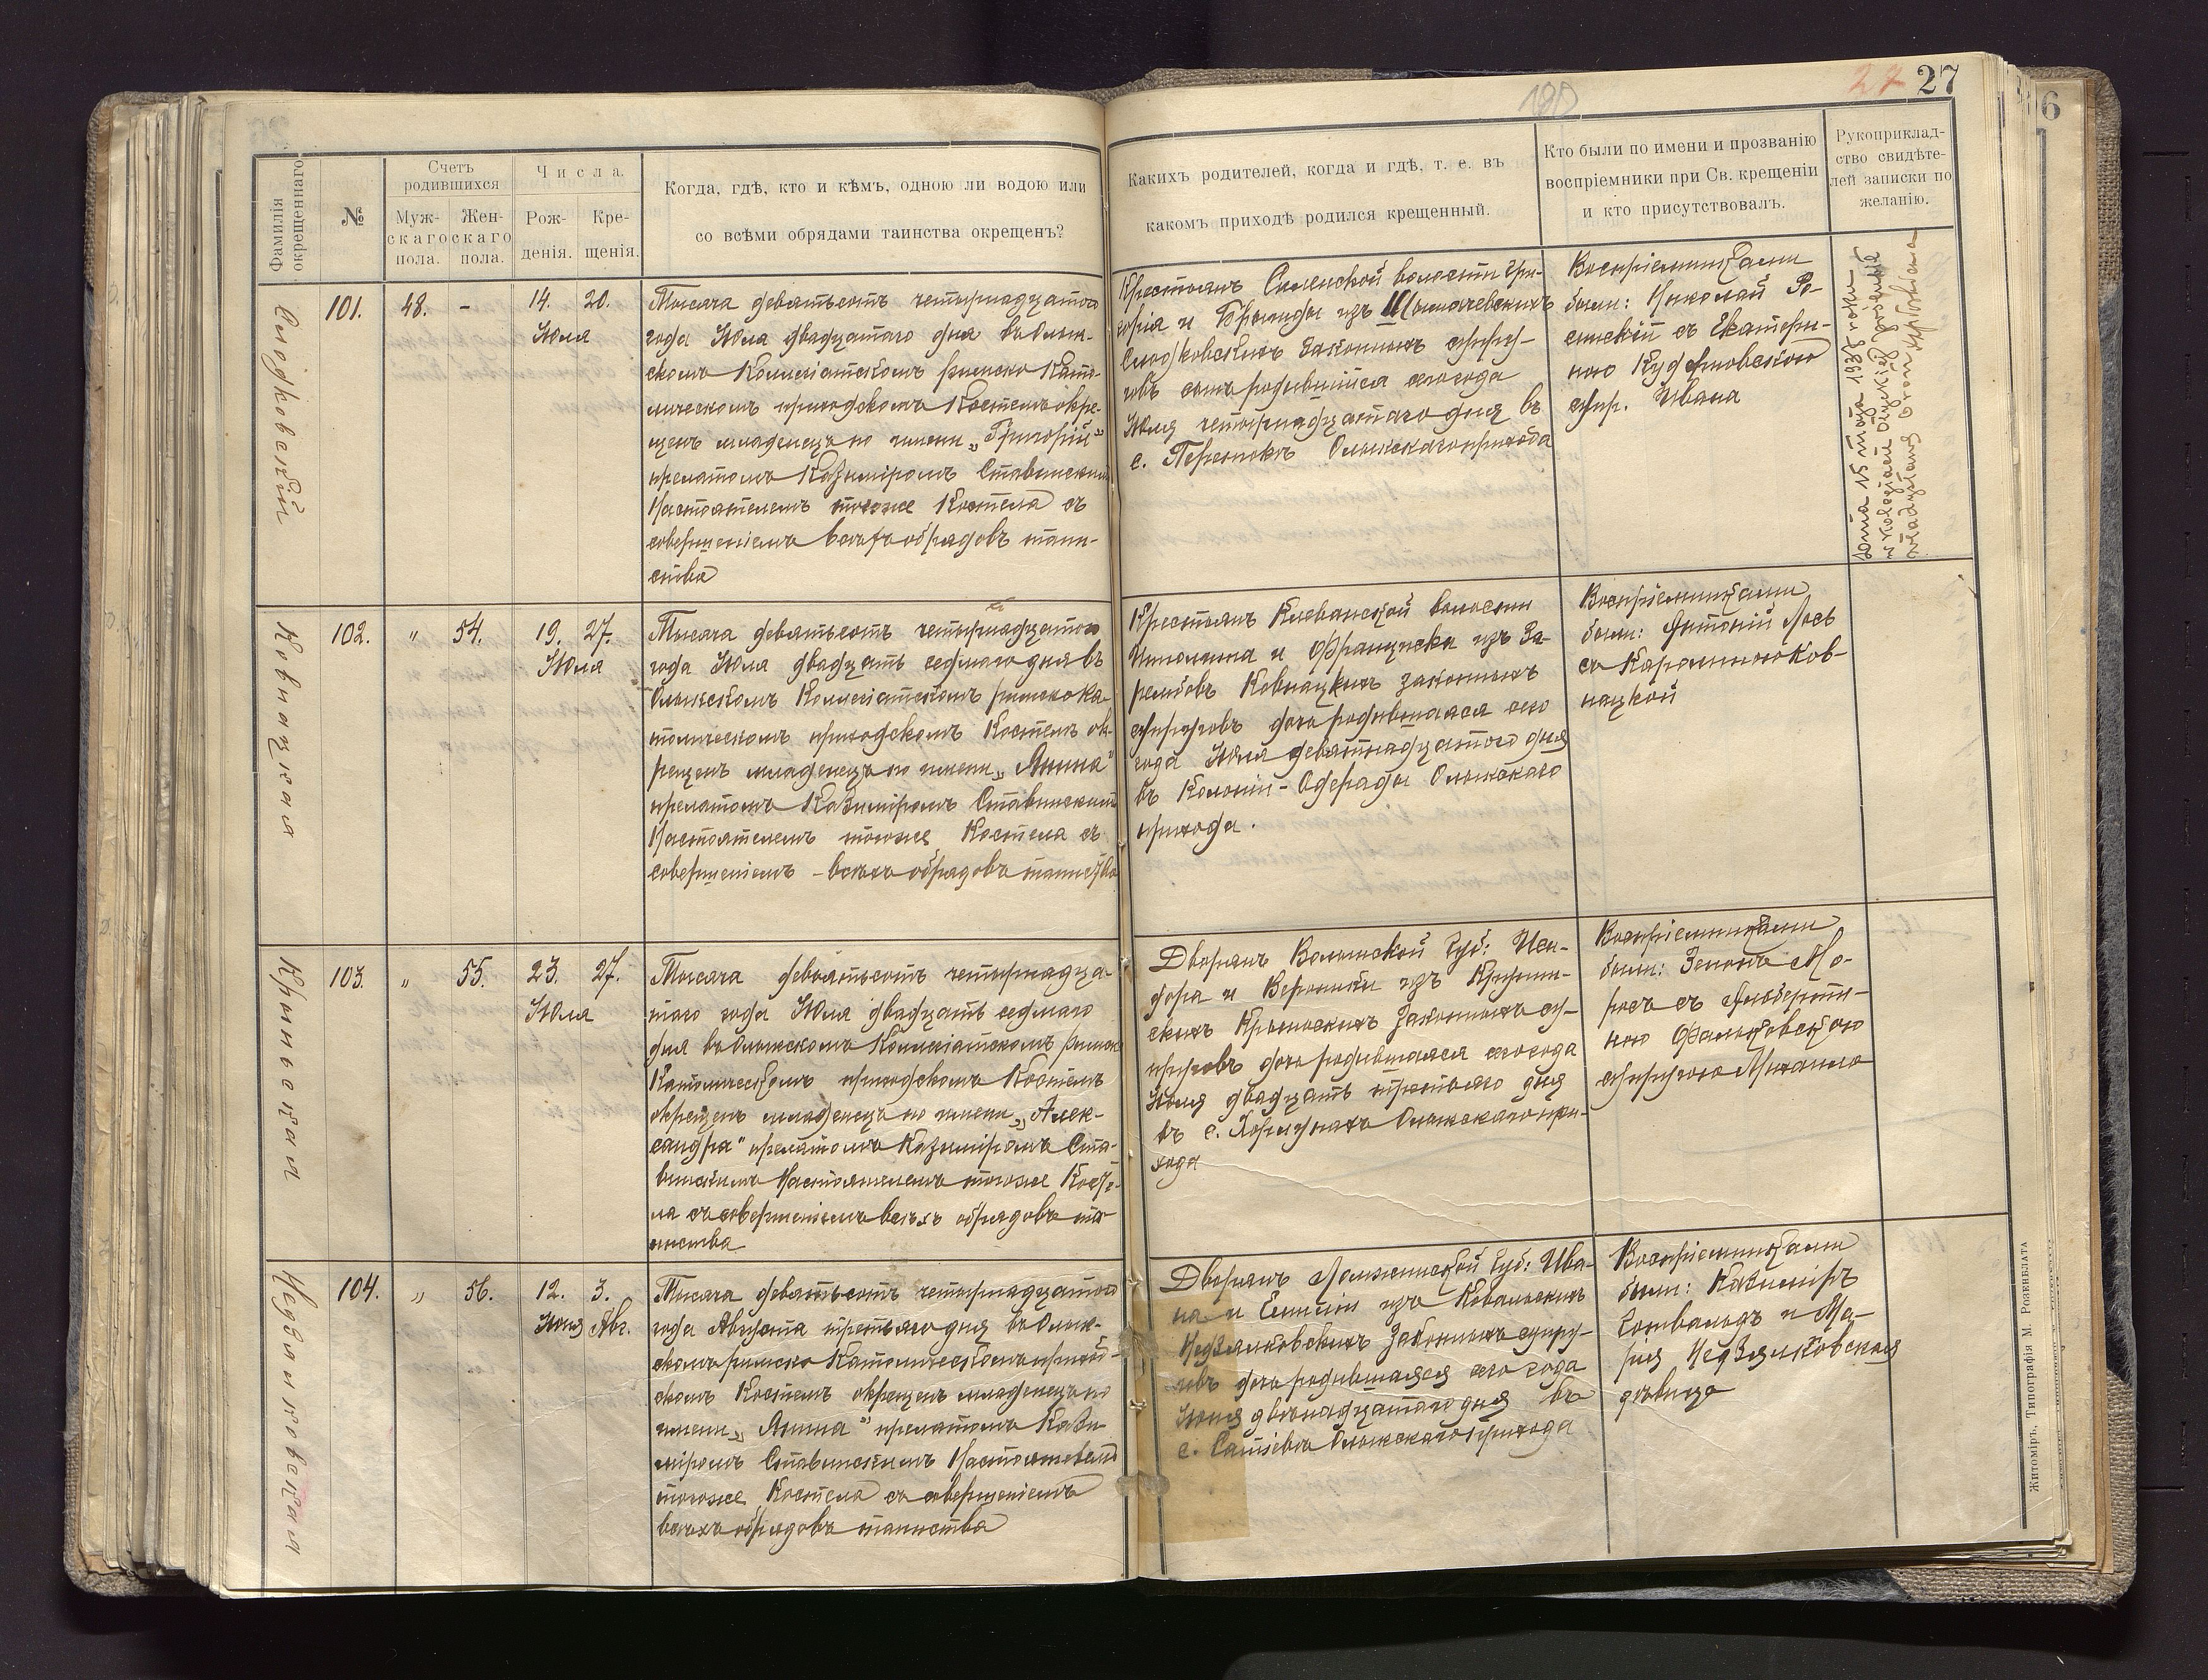 180
27 27
6
Фамилія окрещеннаго
№
Счетъ родившихся
Муж-
скаго
пола.
Жен-
скаго
пола.
Числа.
Рож-
денія.
Кре-
щенія.
Когда, гдѣ, кто и кѣмъ, одною ли водою или
со всѣми обрядами таинства окрещенъ?
Какихъ родителей, когда и гдѣ, т. е. въ
какомъ приходѣ родился крещенный.
Кто были по имени и прозванію
воспріемники при Св. крещеніи
и кто присутствовалъ.
Рукоприклад-
ство свидѣте-
лей записки по
желанію.
101. 48. - 14. 20.
Юля
Тысяча девятьсотъ четырнадцатого
года Юля двадцатаго дня въ Олык-
скомъ Коллегіатскомъ римско Като-
лическомъ приходскомъ Костелѣ окре-
щенъ младенецъ по имени „Григорій"
прелатомъ Казиміромъ Ставинскимъ
Настоятелемъ тогоже Костела съ
совершеніемъ всѣхъ обрядовъ таин-
ства
Крестьянъ Силенской волости Гри-
горія и Бригиды изъ
законныхъ супру-
говъ сынъ родившійся сего года
Юля четырнадцатаго дня въ
с. Олыкскаго прихода
Воспріемниками
были: Николай Ро-
синскій съ Екатери-
ною
супр. Ивана
dnia 15 maja 1935 roku
Ковнацкая
102. " 54. 19. 27.
Юля
Тысяча девятьсотъ четырнадцатого
года Юля двадцать седмаго дня въ
Олыкскомъ Коллегіатскомъ римско ка-
толическомъ приходскомъ Костелѣ ок-
рещенъ младенецъ по имени „Янина"
прелатомъ Казиміромъ Ставинскимъ
Настоятелемъ тогоже Костела съ
совершеніемъ - всѣхъ обрядовъ таинства
Крестьянъ Клеванской волости
Ипполита и Франциска изъ За-
рембовъ Ковнацкихъ законныхъ
супруговъ дочь родившаяся сего
года Юля девятнадцатого дня
въ Колоніи - Одерады Олыкскаго
прихода.
Воспріемниками
были: Антоній Лось
съ Каролиною Ков-
нацкой
Крынская
103. " 55. 23. 27.
Юля
Тысяча девятьсотъ четырнадца-
таго года Юля двадцать седмаго
дня въ Олыкскомъ Коллегіатскомъ римско
Католическомъ приходскомъ Костелѣ
окрещенъ младенецъ по имени „Алек-
сандра" прелатомъ Казиміромъ Ста-
винскимъ Настоятелемъ тогоже Косте-
ла съ совершеніемъ всѣхъ обрядовъ та-
инства
Дворянъ Волынской Губ: Иси-
дора и Вероники изъ
Крынскихъ законныхъ су-
пруговъ дочь родившаяся сего года
Юля двадцать третьяго дня
въ с. Хорлупахъ Олыкскаго при-
хода
Воспріемниками
были: Зенонъ Мо-
розъ съ Альберти-
ною Фальковскою
супругою Михаила
Недзялковская
104. " 56. 12. 3.
Юня Авг.
Тысяча девятьсотъ четырнадцатого
года Августа третьяго дня въ Олык-
скомъ римско Католическомъ приход-
скомъ Костелѣ окрещенъ младенецъ по
имени „Янина" прелатомъ Кази-
міромъ Ставинскимъ Настоятелемъ
тогоже Костела съ совершеніемъ
всѣхъ обрядовъ таинства
Дворянъ Ломжинской Губ: Ива-
на и Емиліи изъ Ковальскихъ
Недзялковскихъ законныхъ супру-
говъ дочь родившаяся сего года
Юня двѣнадцатаго дня въ
с. Сатіевъ Олыкскаго прихода
Воспріемниками
были: Казиміръ
Готвальдъ и Ма-
рія Недзялковская
дѣвица
Житоміръ, Типографія М. Розенблата